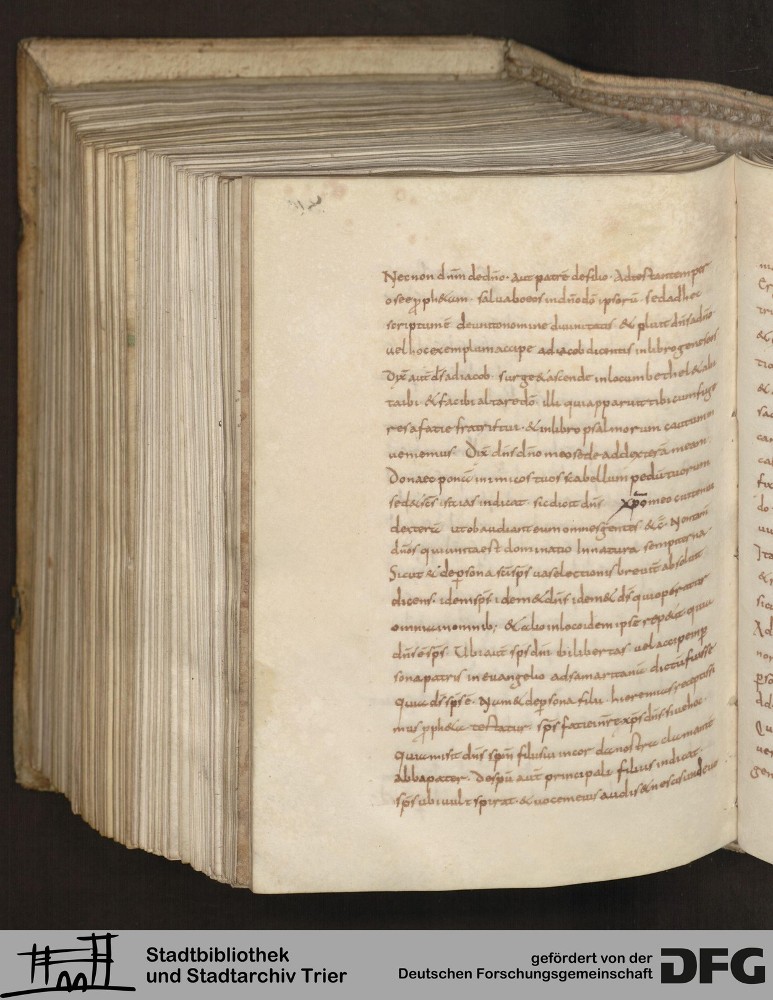 Necnon dnm dedno. aut patrē defilio. Adtestantem per
osee ꝓphetam. saluabo eos indnōdō ipsorū. sed adhec
scripturē deunitonomine diuinitatis &pluit dnsadno
uel hocexemplumaccipe adiacob dicentis inlibrogeneseos
Dix̄ aut d̄s adiacob. surge &ascende inlocumbethel &abi
taibi &facibi altaredō. illi quiapparuit tibicumfuge
resafatie fratristui. &inlibro psalmorum cautum
ueniemus. Dix̄ dn̄s dn̄o meo sede addexterā meam
Donaec ponā inimicos tuos scabellum pedū tuorum
sed&scs isaias indicat. sic dicit dn̄s xp̄o meo cuitenui
dexterā utobaudiant eum omnes gentes. &c̄. Nontam
duos quiuna est dominatio Innatura sempiterna.
Sicut &depersona sūsps uaselectionis breuit absoluit
dicens. idemsps. idem&dn̄s idem&d̄s quioperatur
omniainomnib; &alio inlocoidem ipse rep&it quia
dn̄s ē sps. Ubi aut̄ sps dn̄i ibi libertas uel accipe ꝑ
sona patris inevangelio adsamaritanā dictūfuisse
quia d̄s sps ē. Nam &depersona filii. hieremias
mus ꝓph&a testatur. sps faciei nr̄e xp̄s dn̄s siue hoc
quia misit dn̄s spm̄ filiisui incor danostra clamante
abbapater. Despū aut̄ principali filius indicat.
sps ubiuult spirat &uocemeius audis &nescisunde
Stadtbibliothek
und Stadtarchiv Trier
gefördert von der
Deutschen Forschungsgemeinschaft
DFG